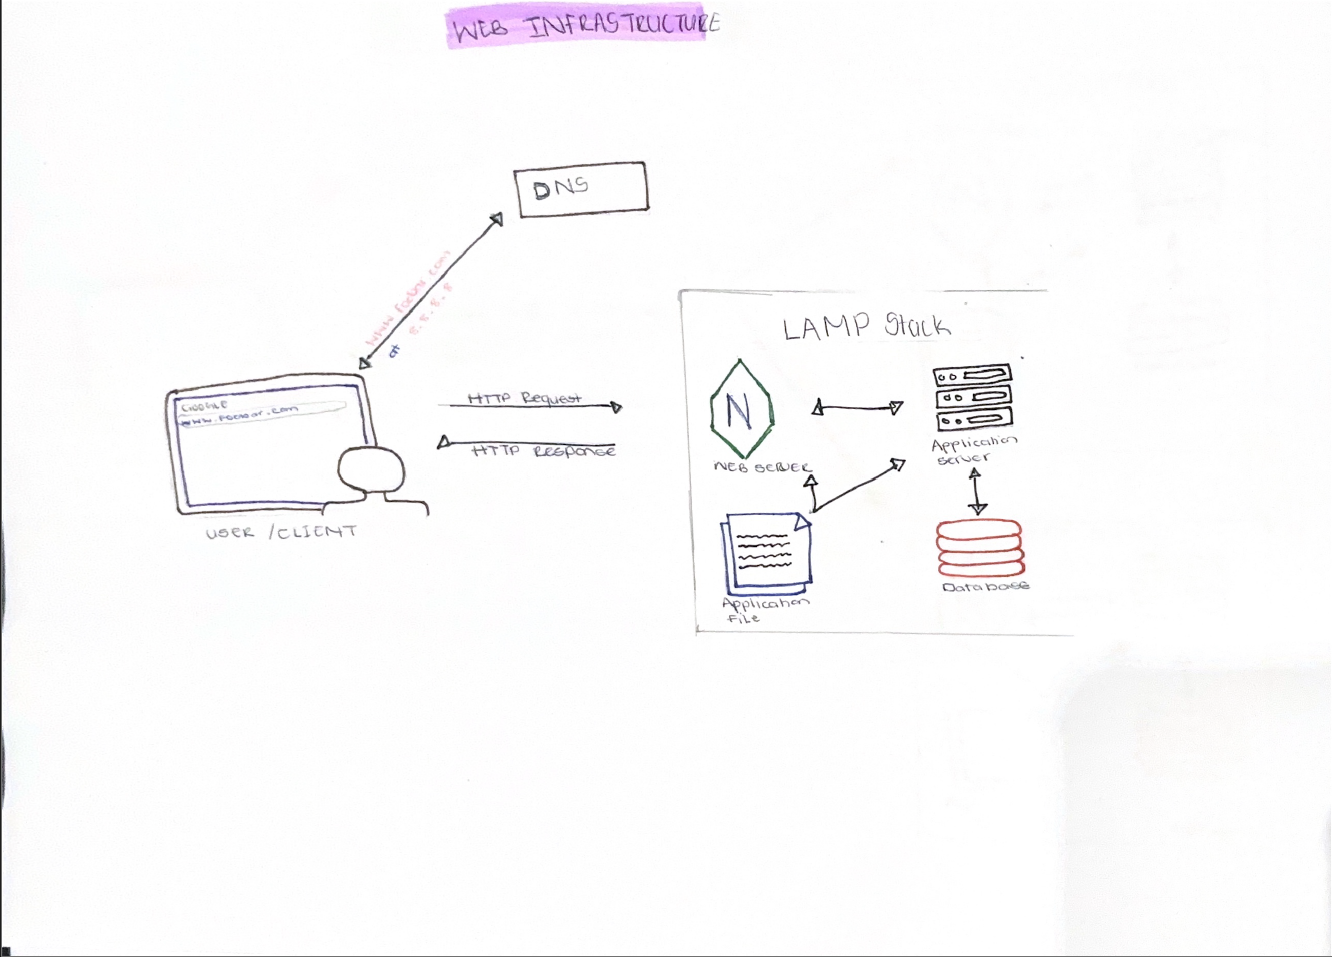 WEB INFRASTRUCTURE
DNS
www.foobar.com
at 8.8.8.8
GOOGLE
www.foobar.com
USER /CLIENT
HTTP Request
HTTP Response
LAMP Stack
N
WEB SERVER
Application
Server
Application
File
Database